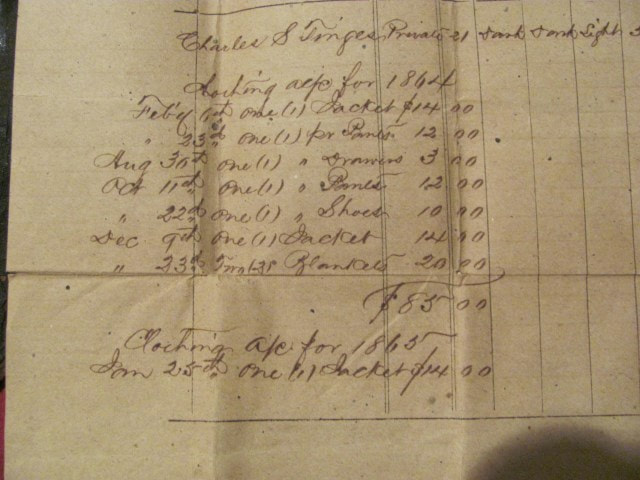 Charles S Tinges Private 21 Dark Dark Light 5
Clothing a/c for 1864
Feb'y 6th one (1) Jacket $14 00
" 23d one (1) pr Pants 12 00
Aug 30th one (1) " Drawers 3 00
Oct 11th one (1) " Pants 12 00
" 22d one (1) " Shoes 10 00
Dec 9th one (1) Jacket 14 00
" 23d Two (2) Blankets 20 00
$85 00
Clothing a/c for 1865
Jan 25th one (1) Jacket $14 00